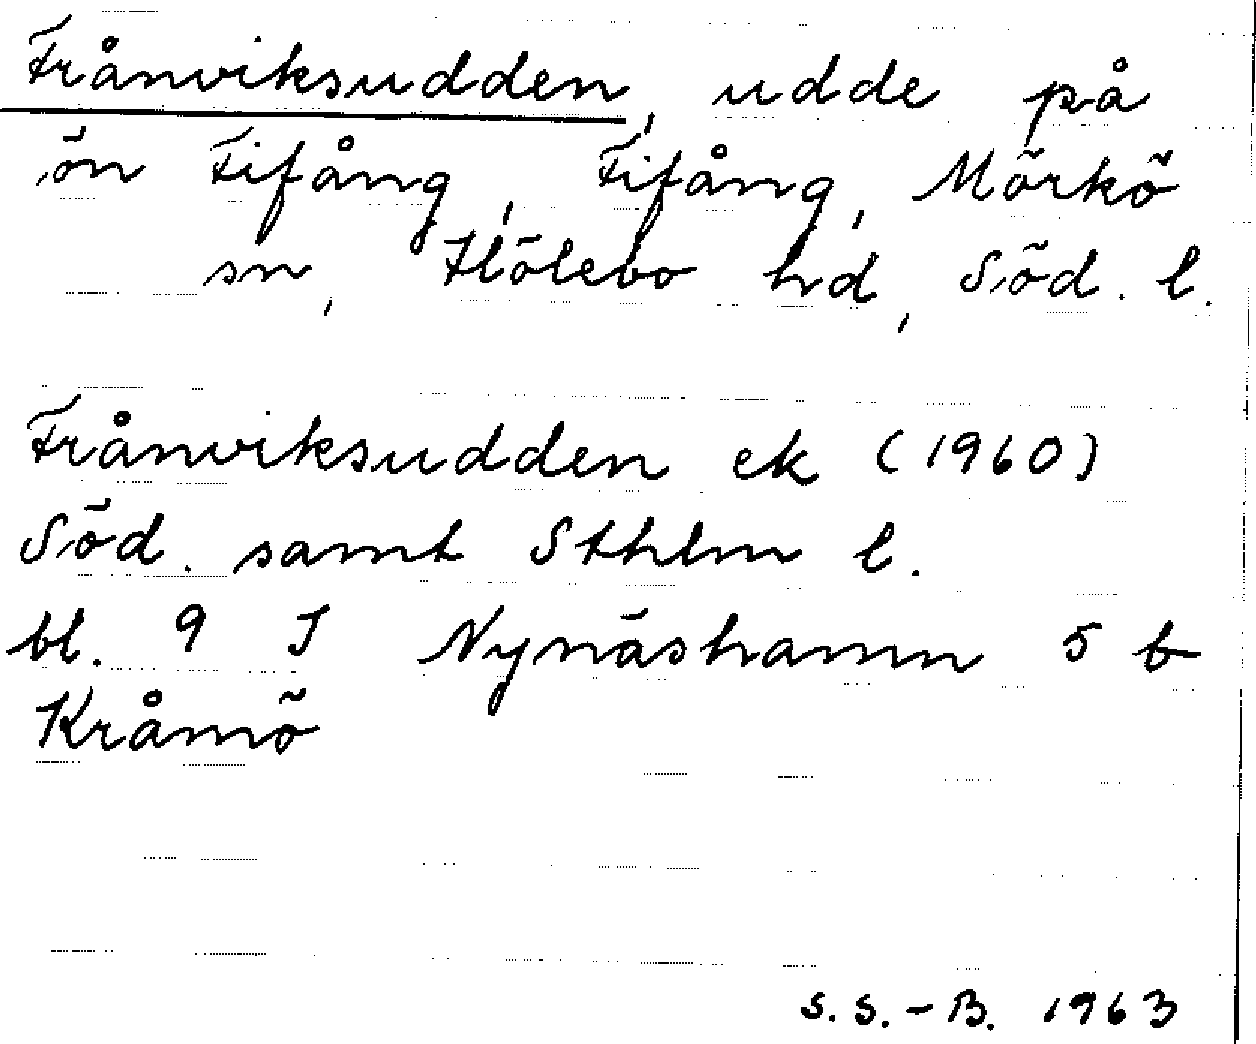 Frånviksudden, udde på
ön Fifång, Fifång, Mörkö
sn, Hölebo hd, Söd. l.
Frånviksudden ek (1960)
Söd. samt Sthlm l.
bl. 9 I Nynäshamn 5 b
Kråmö
S.S.-B. 1963